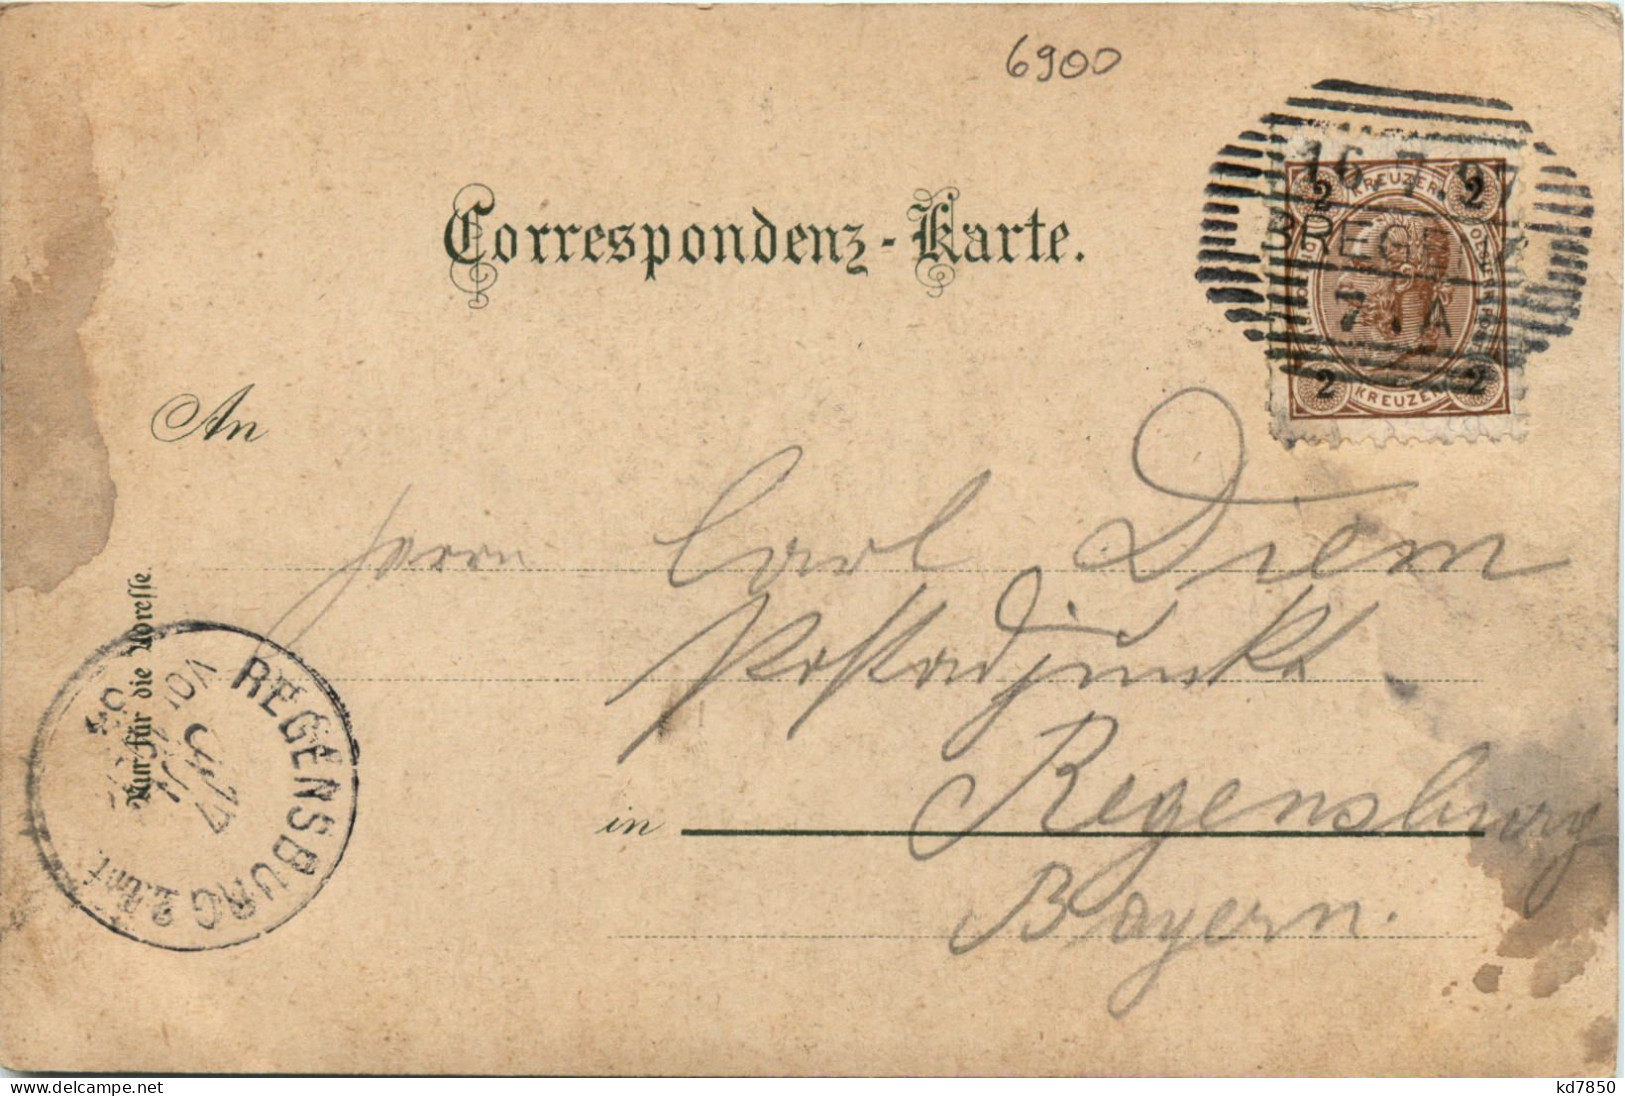 6900
16.7.97
BREGENZ
7.A
2 KREUZER 2
2 KREUZER 2
Correspondenz-Karte.
An
Herrn Carl Diem
Postadjunkt
in Regensburg
Bayern.
Nur für die Adresse.
REGENSBURG 2
17
kd7850